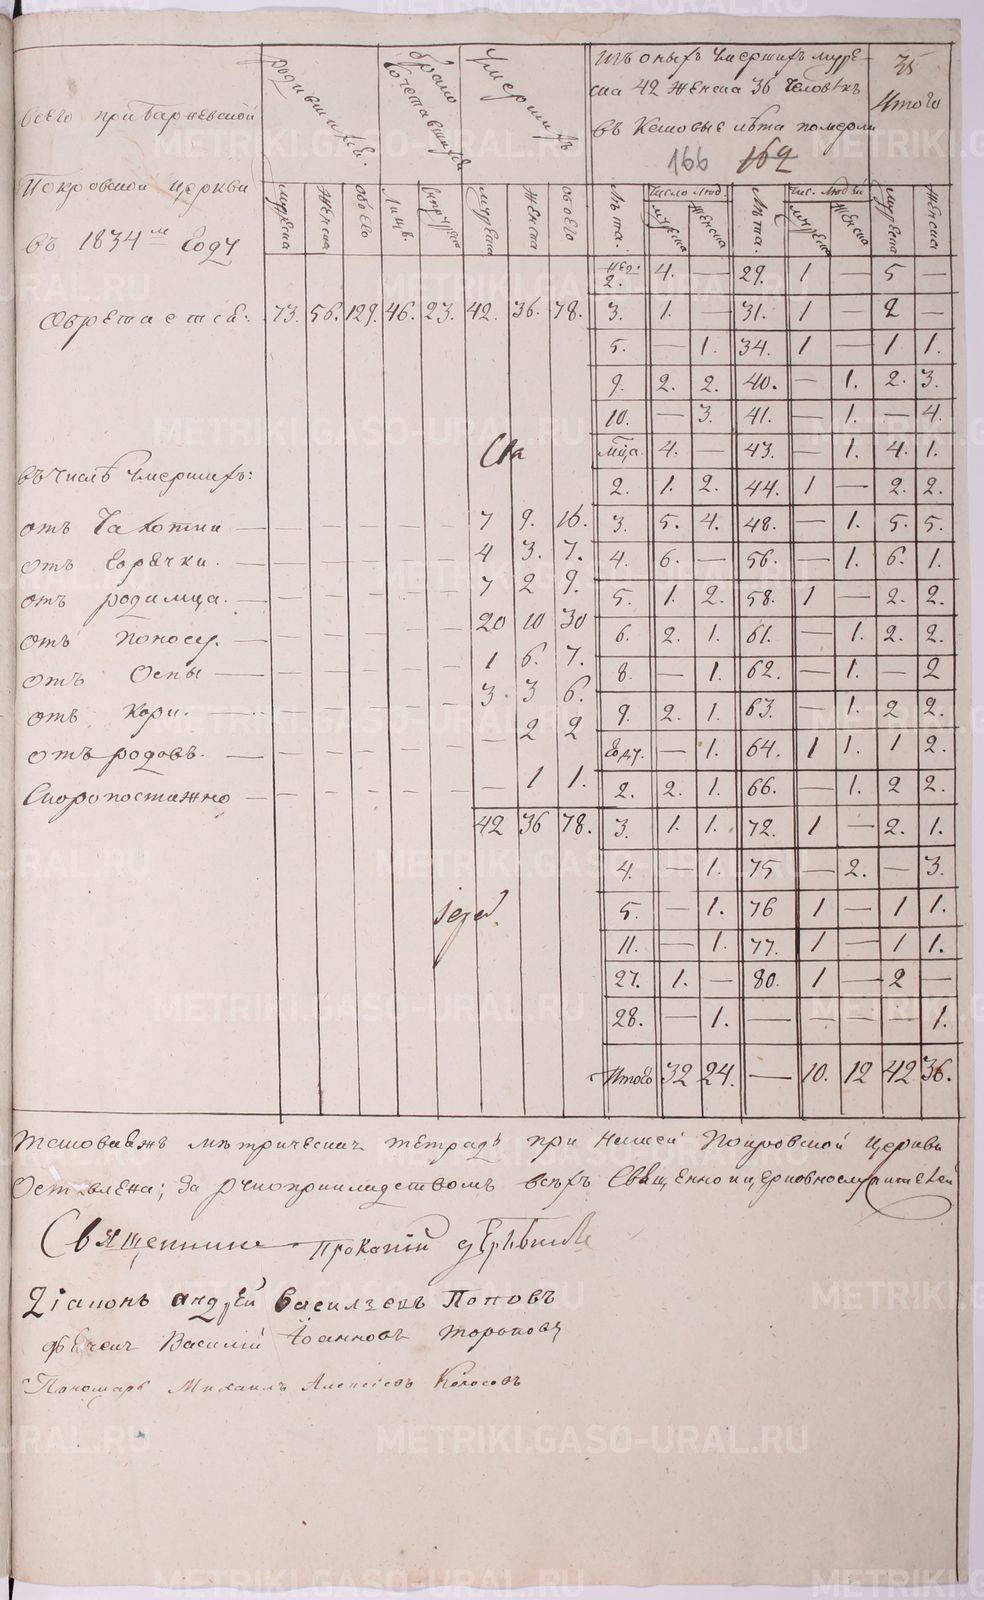 всего при Барневской
Покровской церкви
въ 1834мъ году
Обретается:
родившихся.
брако
сочетавшихся
умершихъ
мужеска
женска
обоего
лицъ
супружес
мужеска
женска
обоего
73. 56. 129. 46. 23. 42. 36. 78.
изъ оныхъ умершихъ муже-
ска 42 женска 36 человѣкъ
въ каковые лѣта померли
166 162
35
Итого
лѣта. число люд. лѣта. чис. людей мужеска женска
мужеска женска мужеска женска
нед. 2. 4. — 29. 1 — 5 —
3. 1. — 31. 1 — 2 —
5. — 1. 34. 1 — 1 1.
9. 2. 2. 40. — 1. 2. 3.
10. — 3. 41. — 1. — 4.
м҃ца 4. — 43. — 1. 4. 1.
2. 1. 2. 44. 1 — 2. 2.
3. 5. 4. 48. — 1. 5. 5.
4. 6. — 56. — 1. 6. 1.
5. 1. 2. 58. 1 — 2. 2.
6. 2. 1. 61. — 1. 2. 2.
8. — 1. 62. — 1. — 2
9. 2. 1. 63. — 1. 2 2.
году. — 1. 64. 1 1. 1 2.
2. 2. 1. 66. — 1. 2 2.
3. 1. 1. 72. 1 — 2. 1.
4. — 1. 75 — 2. — 3.
5. — 1. 76 1 — 1 1.
11. — 1. 77. 1 — 1 1.
27. 1. — 80. 1 — 2 —
28. — 1. — — — — 1.
Итого 32 24. — 10. 12 42 36.
въ числѣ умершихъ:
отъ Чахотки — — — — — 7 9. 16.
отъ горячки. — — — — — 4 3. 7.
отъ родимца. — — — — — 7 2 9.
отъ поносу. — — — — — 20 10 30
отъ Оспы — — — — — 1 6. 7.
отъ кори. — — — — — 3. 3 6.
отъ родовъ. — — — — — — 2 2
Скоропостижно — — — — — — 1 1.
42 36 78.
Таковаяжъ метрическая тетрадь при нашей Покровской церкви
Оставлена; за рукоприкладствомъ всѣхъ Священно и церковнослужителей
Священникъ
Дїаконъ Андрей Васильевъ Поповъ
Василий Иоанновъ Тороповъ
Пономарь Михаилъ Алексѣевъ Колосовъ
METRIKI.GASO-URAL.RU